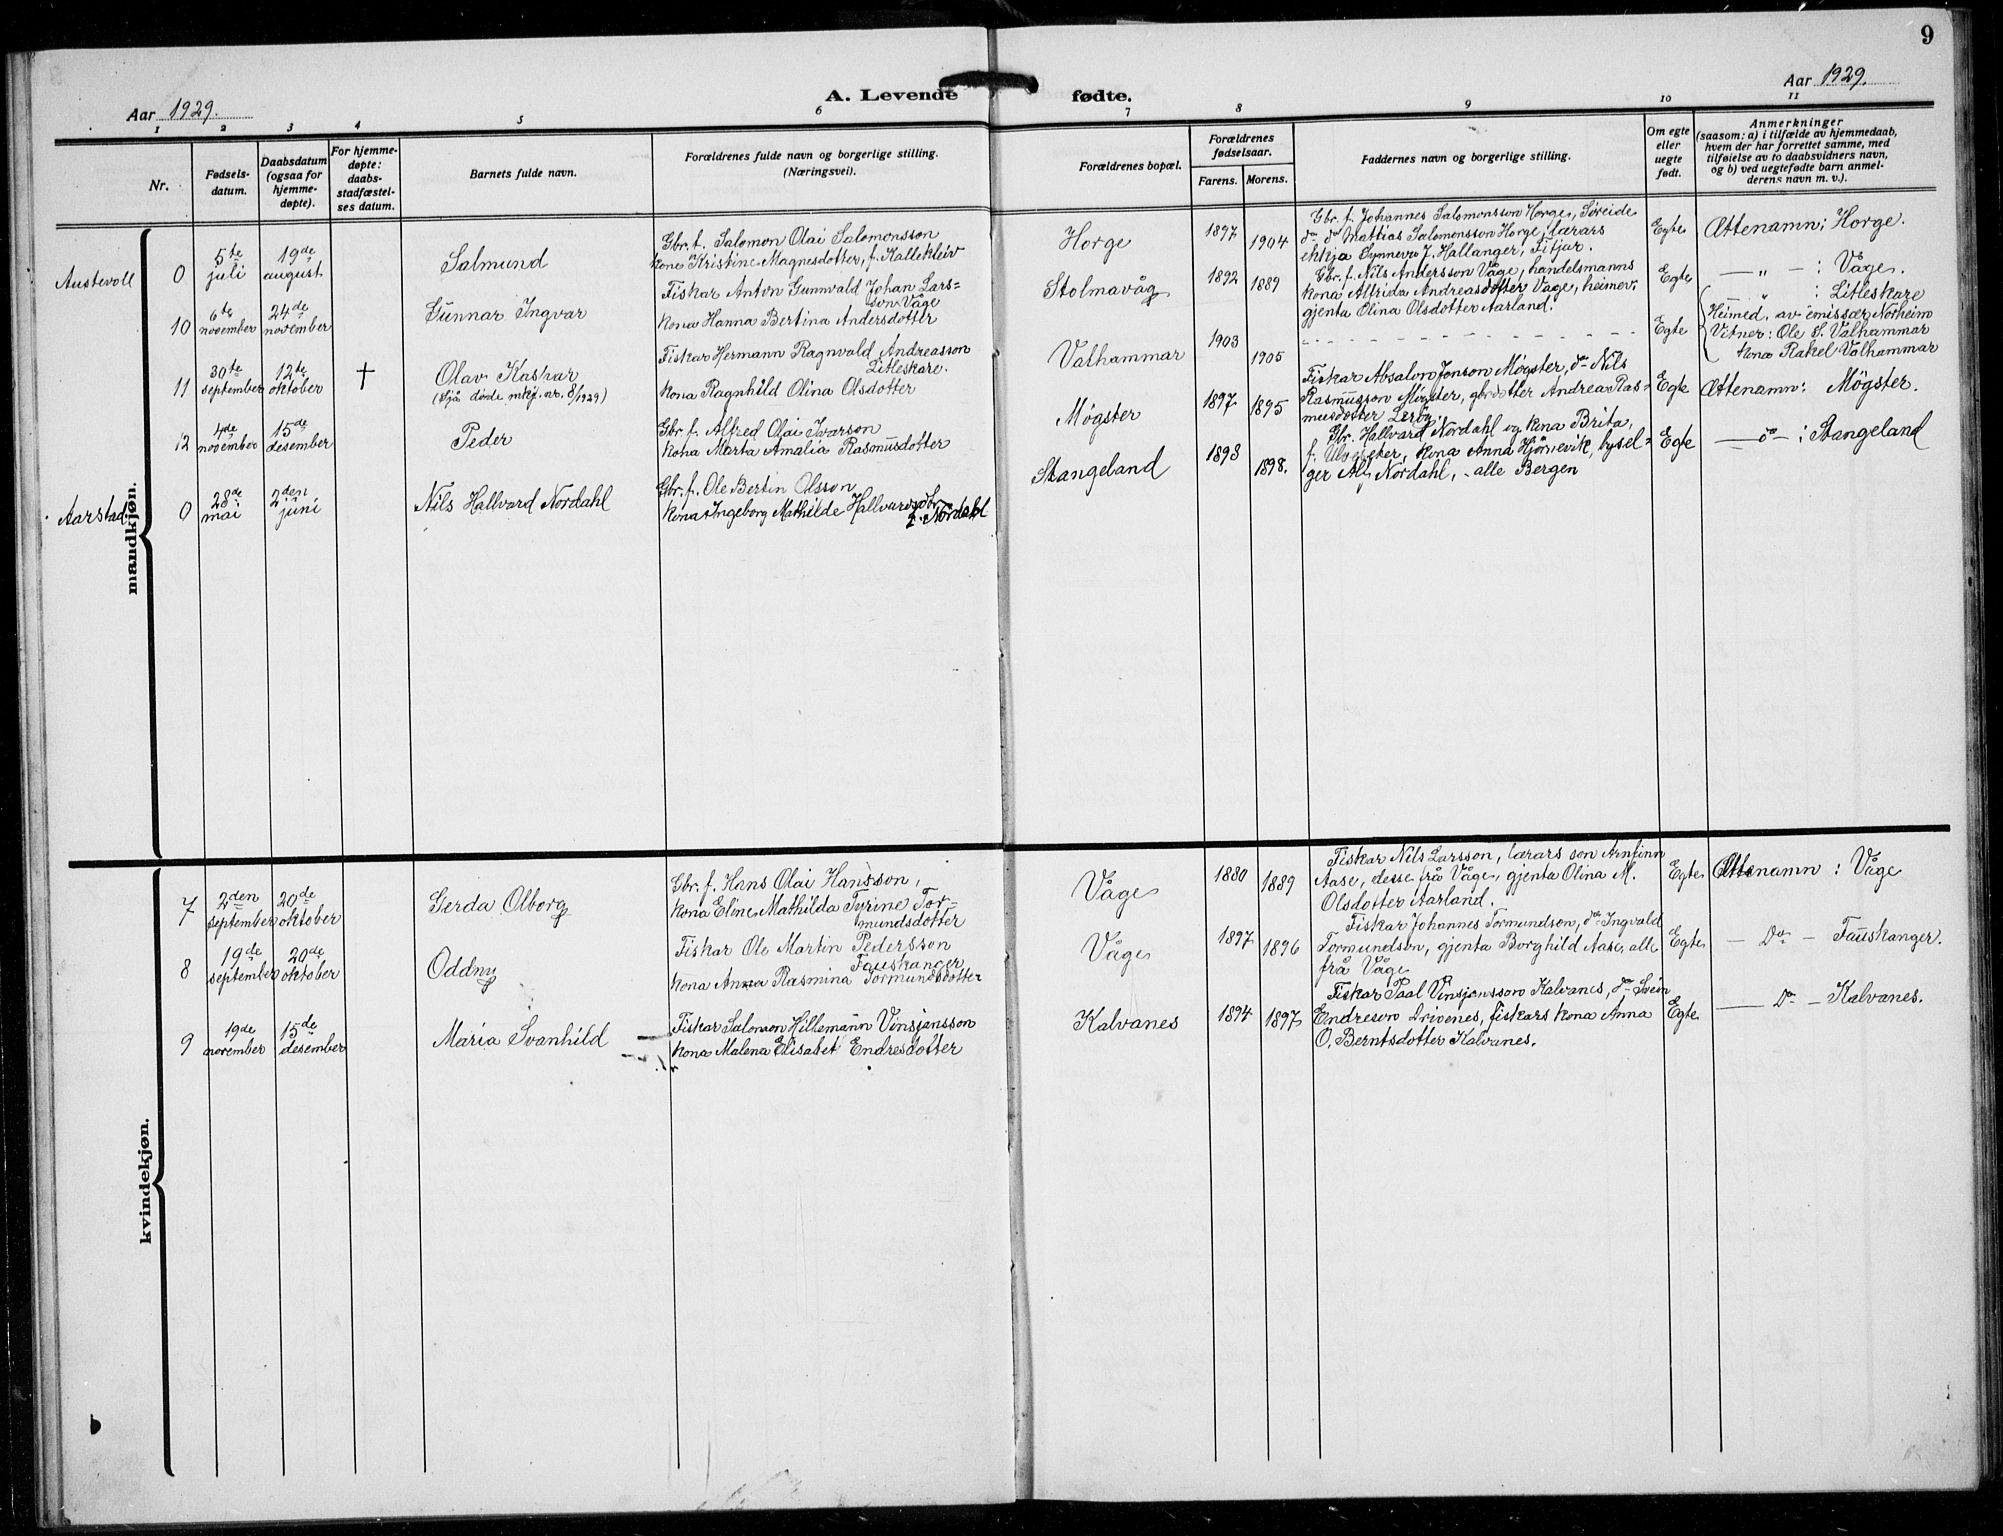 9
Aar 1929.
A. Levende fødte.
Aar 1929.
1 2 3 4 5 6 7 8 9 10 11
Nr.
Fødsels-
datum.
Daabsdatum
(ogsaa for
hjemme-
døpte).
For hjemme-
døpte:
daabs-
stadfæstel-
ses datum.
Barnets fulde navn.
Forældrenes fulde navn og borgerlige stilling.
(Næringsvei).
Forældrenes bopæl.
Forældrenes
fødselsaar.
Farens. Morens.
Faddernes navn og borgerlige stilling.
Om egte
eller
uegte
født.
Anmerkninger
(saasom: a) i tilfælde av hjemmedaab,
hvem der har forrettet samme, med
tilføielse av to daabsvidners navn,
og b) ved uegtefødte barn anmel-
derens navn m. v.).
mandkjøn.
Austevoll
0
5te
juli
19de
august
Salmund
Gbr. f. Salomon Olai Salomonsson
kona Kristine Magnesdotter, f. Kallekleiv
Horge
1897 1904
Gbr. f. Johannes Salomonsson Horge, Søreide
do do Mattias Salomonsson Horge, lærars
ekkja Synneva J. Hallanger, Fitjar.
Egte
Ættenamn: Horge.
10
6te
november
24de
november
Gunnar Ingvar
Fiskar Anton Gunnvald Johan Lars=
son Våge
kona Hanna Bertina Andersdotter
Stolmavåg
1892 1889
Gbr. f. Nils Andersson Våge, handelsmanns
kona Alfrida Andreasdotter Våge, heimev.
gjenta Olina Olsdotter Aarland.
Egte
— " — : Våge.
11
30te
september
12te
oktober
†
Olav Kaspar
(Sjå døde mkj. nr. 8/1929)
Fiskar Hermann Ragnvald Andreasson
Litleskare.
kona Ragnhild Olina Olsdotter
Valhammar
1903 1905
Egte
" : Litleskare
Heimed. av emissær Norheim
Vitner: Ole S. Valhammar
kona Rakel Valhammar
12
4de
november
15de
desember
Peder
Gbr. f. Alfred Olai Ivarson
kona Marta Amalia Rasmusdotter
Møgster
1897 1895
Fiskar Absalon Jonson Møgster, do Nils
Rasmusson Møgster, gbrdotter Andrea Ras=
musdotter Lerøy.
Egte
Ættenamn: Møgster.
Aarstad
0
28de
mai
2den
juni
Nils Hallvard Nordahl
Gbr. f. Ole Bertin Olsson
kona Ingeborg Mathilde Hallvardsdtr.
f. Nordahl
Stangeland
1893 1898.
Gbr. Hallvard Nordahl og kona Brita,
kona Anna Hjörnevik, bysel=
ger Alf Nordahl, - alle Bergen
Egte
— do — : Stangeland
kvindekjøn.
7
2den
september
20de
oktober
Gerda Olborg
Gbr. f. Hans Olai Hansson,
kona Eline Mathilda Tyrine Tor=
mundsdotter
Våge
1880 1889
Fiskar Nils Larsson, lærars son Arnfinn
Aase, desse frå Våge, gjenta Olina M.
Olsdotter Aarland.
Egte
Ættenamn : Våge
8
19de
september
20de
oktober
Oddny
Fiskar Ole Martin Pedersson
Fauskanger
kona Anna Rasmina Tormundsdotter
Våge
1897 1896
Fiskar Johannes Tormundson, do Ingvald
Tormundson, gjenta Borghild Aase, alle
frå Våge
Egte
— Do — Fauskanger.
9
19de
november
15de
desember
Maria Svanhild
Fiskar Salomon Hillemann Vinsjansson
kona Malena Elisabet Endresdotter
Kalvanes
1894 1897
Fiskar Paal Vinsjansson Kalvanes, do Svein
Endreson Drivenes, fiskars kona Anna
O. Berntsdotter Kalvanes.
Egte
— Do — Kalvanes.